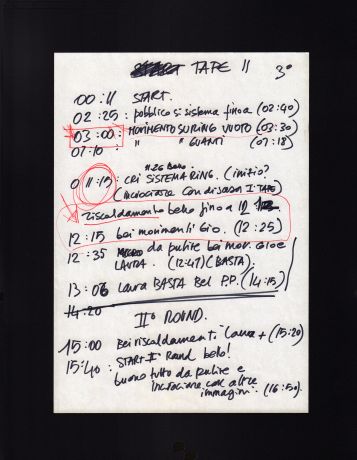 START TAPE 11 3°
00:11 START.
02:25: pubblico si sistema fino a (02:40)
03:00: MOVIMENTO SU RING VUOTO (03:30)
07:10 " " GUANTI (07:18)
11:15: CRI SISTEMA RING. (inizio?)
(incrociare con discorso I TAPE)
riscaldamento bello fino a 12
12:15 bei movimenti Gio. (12:25)
12:35 da pulire bei mov. Gio e
LAURA. (12:47) (BASTA)
13:06 Laura BASTA Bel P.P. (14:15)
14:20
II° ROUND.
15:00 Bei riscaldamenti Laura + (15:20)
15:40: START II° Round bello!
buono tutto da pulire e
incrociare con altre
immagini. (16:50).